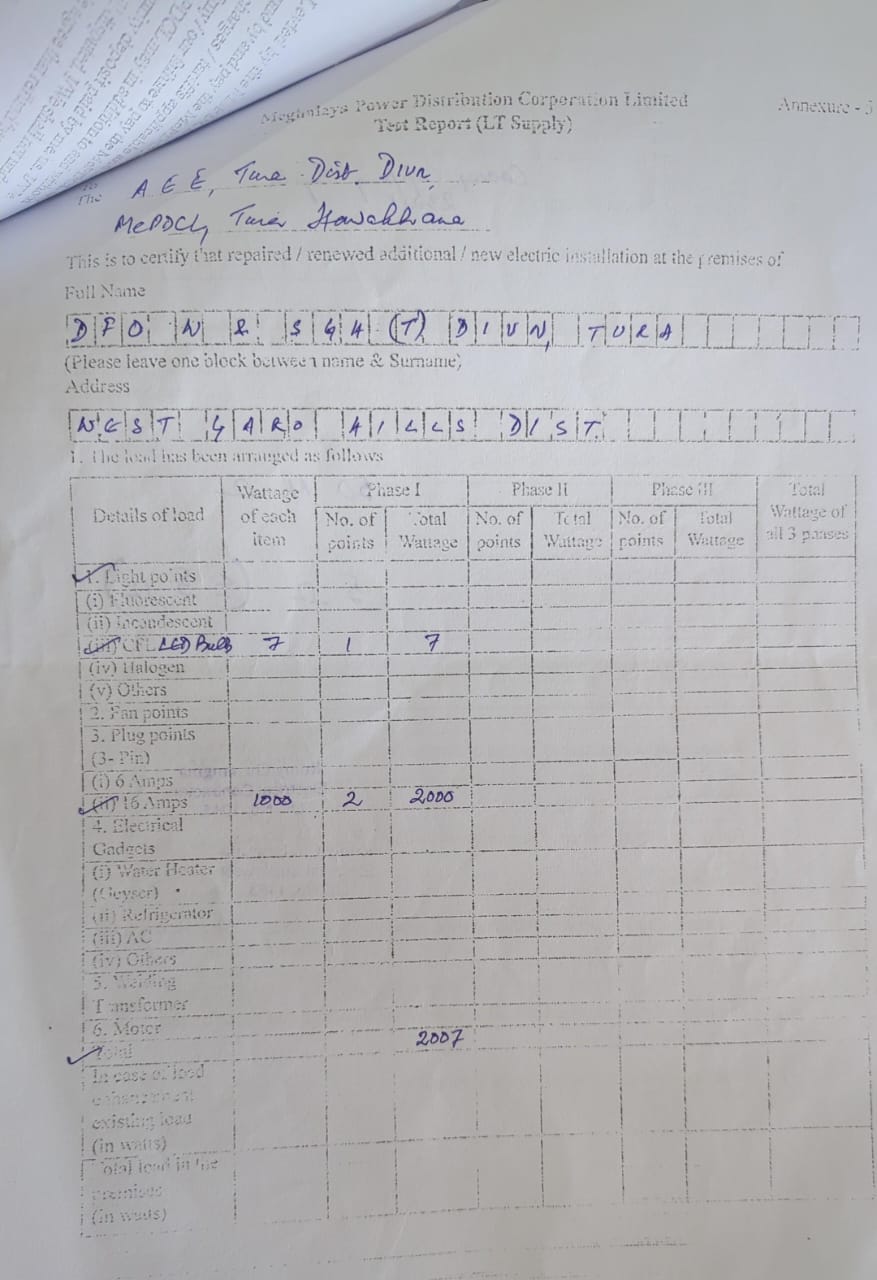 Meghalaya Power Distribution Corporation Limited
Annexure - 5
Test Report (LT Supply)
To
The A E E, Tura Dist. Divn,
MePDCL, Tura Hawakhana
This is to certify that repaired / renewed additional / new electric installation at the premises of
Full Name
DFO N & SGH (T) DIVN, TURA
(Please leave one block between name & Surname)
Address
WEST GARO HILLS DIST.
1. The load has been arranged as follows
Details of load | Wattage of each item | Phase I | Phase II | Phase III | Total Wattage of all 3 phases
No. of points | Total Wattage | No. of points | Total Wattage | No. of points | Total Wattage
1. Light points
(i) Fluorescent
(ii) Incandescent
(iii) CFL LED Bulb 7 1 7
(iv) Halogen
(v) Others
2. Fan points
3. Plug points
(3- Pin)
(i) 6 Amps
(ii) 16 Amps 1000 2 2000
4. Electrical
Gadgets
(i) Water Heater
(Geyser)
(ii) Refrigerator
(iii) AC
(iv) Others
5. Welding
Transformer
6. Motor
Total 2007
In case of load
enhancement
existing load
(in watts)
Total load in the
premises
(in watts)